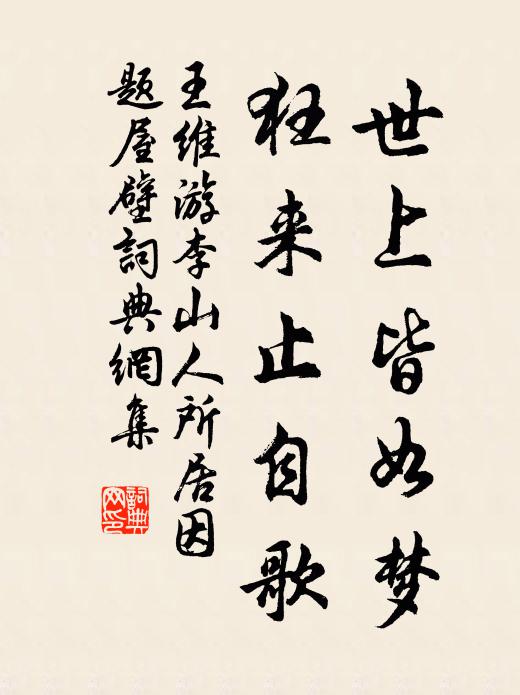 世上皆如梦
狂来止自歌
王维游李山人所居因
题屋壁詞典網集
詞典
网印